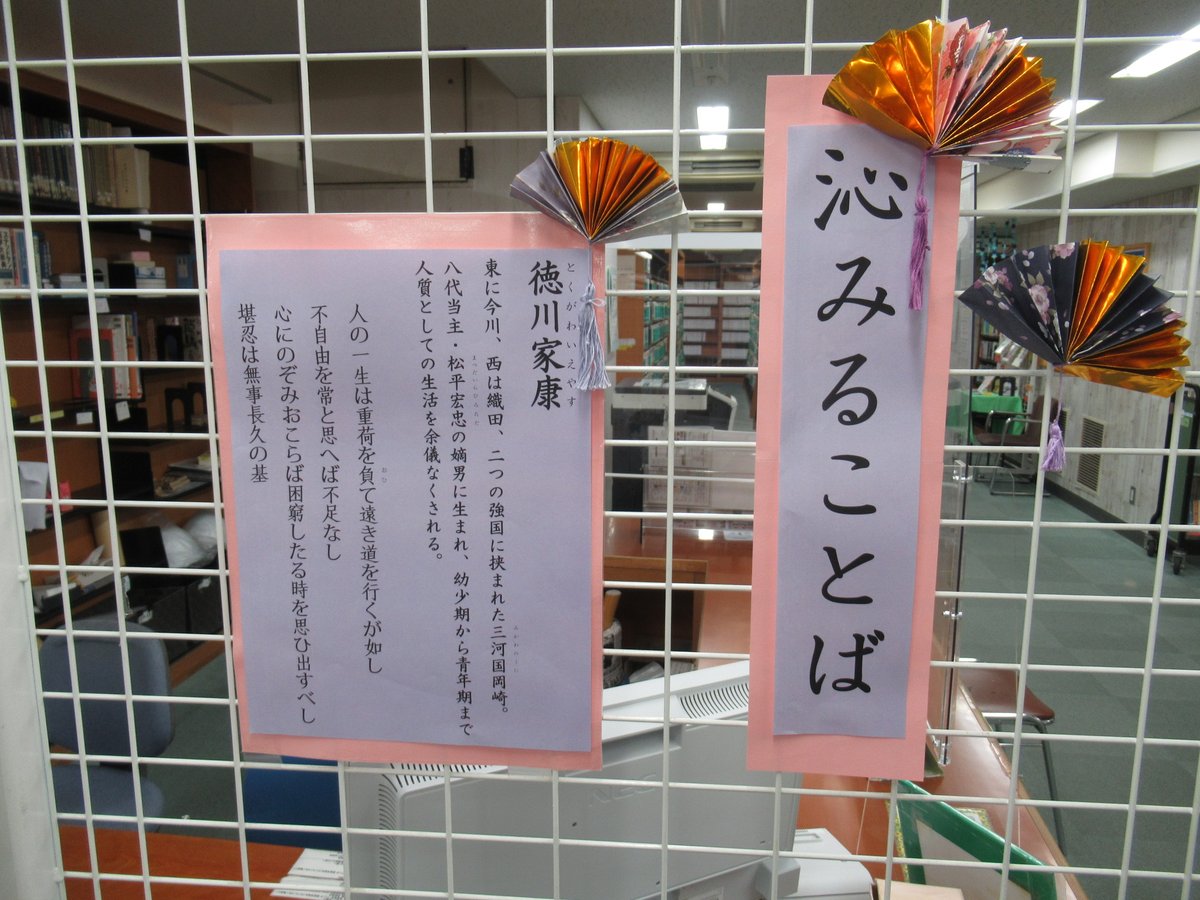 沁みることば
徳川家康
とくがわいえやす
東に今川、西は織田、二つの強国に挟まれた三河国岡崎。
八代当主・松平宏忠の嫡男に生まれ、幼少期から青年期まで
人質としての生活を余儀なくされる。
人の一生は重荷を負て遠き道を行くが如し
おひ
不自由を常と思へば不足なし
心にのぞみおこらば困窮したる時を思ひ出すべし
堪忍は無事長久の基
NEC